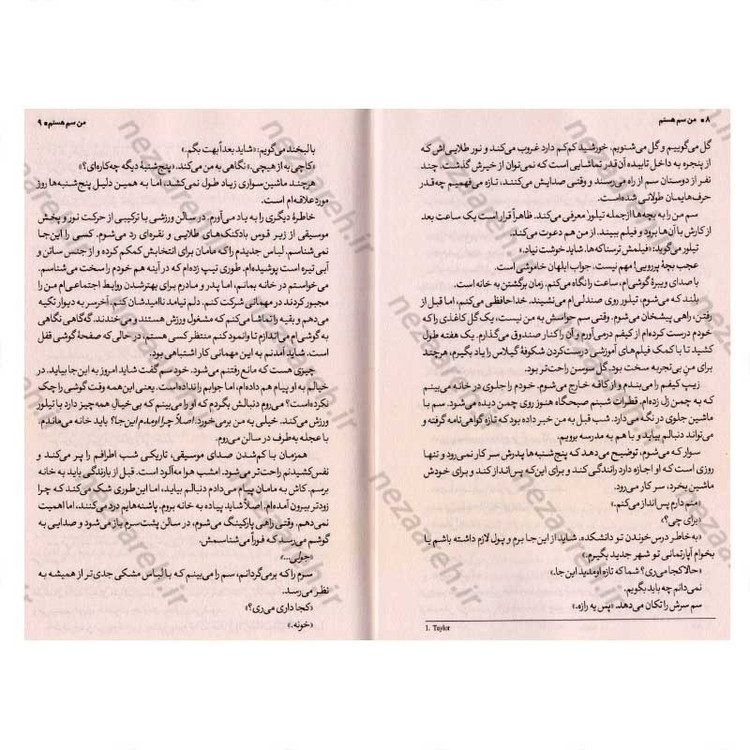 ۸ ■ من سم هستم
گل می‌گوییم و گل می‌شنویم. خورشید کم‌کم دارد غروب می‌کند و نور طلایی‌اش که
از پنجره به داخل تابیده آن‌قدر تماشایی است که نمی‌توان از خیرش گذشت. چند
نفر از دوستان سم از راه می‌رسند و وقتی صدایش می‌کنند، تازه می‌فهمیم چه‌قدر
حرف‌هایمان طولانی شده است.
سم من را به بچه‌ها ازجمله تیلور معرفی می‌کند. ظاهراً قرار است یک ساعت بعد
از کارش با آن‌ها برود و فیلم ببیند. از من هم دعوت می‌کند.
تیلور می‌گوید: «فیلمش ترسناکه‌ها. شاید خوشت نیاد.»
عجب بچهٔ پررویی! مهم نیست. جواب ابلهان خاموشی است.
با صدای ویبرهٔ گوشی‌ام، ساعت را نگاه می‌کنم. زمان برگشتن به خانه است.
بلند که می‌شوم، تیلور روی صندلی‌ام می‌نشیند. خداحافظی می‌کنم، اما قبل از
رفتن، راهی پیشخان می‌شوم. وقتی سم حواسش به من نیست، یک گل کاغذی را که
خودم درست کرده‌ام از کیفم درمی‌آورم و آن را کنار صندوق می‌گذارم. یک هفته طول
کشید تا با کمک فیلم‌های آموزشی درست‌کردن شکوفهٔ گیلاس را یاد بگیرم، هرچند
برای منِ بی‌تجربه سخت بود. گل سوسن راحت‌تر بود.
زیپ کیفم را می‌بندم و از کافه خارج می‌شوم. خودم را جلوی در خانه می‌بینم
که به چمن زل زده‌ام. قطرات شبنم صبحگاه هنوز روی چمن دیده می‌شود. سم با
ماشین جلوی در نگه می‌دارد. شب قبل به من خبر داده بود که تازه گواهی‌نامه گرفته و
می‌تواند دنبالم بیاید و با هم به مدرسه برویم.
سوار که می‌شوم، توضیح می‌دهد که پنج‌شنبه‌ها پدرش سر کار نمی‌رود و تنها
روزی است که او اجازه دارد رانندگی کند و برای این‌که پس‌انداز کند و برای خودش
ماشین بخرد، سر کار می‌رود.
«منم دارم پس‌انداز می‌کنم.»
«برای چی؟»
«به‌خاطر درس خوندن تو دانشکده. شاید از این‌جا برم و پول لازم داشته باشم یا
بخوام آپارتمانی تو شهر جدید بگیرم.»
«حالا کجا می‌ری؟ شما که تازه اومدید این‌جا.»
نمی‌دانم چه باید بگویم.
سم سرش را تکان می‌دهد. «پس یه رازه.»
1. Taylor
من سم هستم ■ ۹
با لبخند می‌گویم: «شاید بعداً بهت بگم.»
«کاچی به از هیچی.» نگاهی به من می‌کند. «پنج‌شنبهٔ دیگه چه‌کاره‌ای؟»
هرچند ماشین‌سواری زیاد طول نمی‌کشد، اما به همین دلیل پنج‌شنبه‌ها روز
موردعلاقه‌ام است.
خاطرهٔ دیگری را به یاد می‌آورم. در سالن ورزشی با ترکیبی از حرکت نور و پخش
موسیقی از زیر قوس بادکنک‌های طلایی و نقره‌ای رد می‌شوم. کسی را این‌جا
نمی‌شناسم. لباس جدیدم را که مامان برای انتخابش کمکم کرده و از جنس ساتن و
آبی تیره است پوشیده‌ام. طوری تیپ زده‌ام که در آینه هم خودم را سخت می‌شناسم.
می‌خواستم در خانه بمانم، اما پدر و مادرم برای بهترشدن روابط اجتماعی‌ام من را
مجبور کردند در مهمانی شرکت کنم. دلم نیامد ناامیدشان کنم. آخرسر به دیوار تکیه
می‌دهم و بقیه را تماشا می‌کنم که مشغول ورزش هستند و می‌خندند. گه‌گاهی نگاهی
به گوشی‌ام می‌اندازم تا وانمود کنم منتظر کسی هستم، در حالی که صفحهٔ گوشی قفل
است. شاید آمدنم به این مهمانی کار اشتباهی بود.
چیزی هست که مانع رفتنم می‌شود. خود سم گفت شاید امروز به این‌جا بیاید. در
خیالم به او پیام هم داده‌ام، اما جوابم را نداده است. یعنی این‌همه وقت گوشی را چک
نکرده است؟ می‌روم دنبالش بگردم که او را می‌بینم که بی‌خیالِ همه‌چیز دارد با تیلور
ورزش می‌کند. خیلی به من برمی‌خورد. اصلاً چرا اومدم این‌جا؟ باید خانه می‌ماندم.
با عجله به‌طرف در سالن می‌روم.
همزمان با کم‌شدن صدای موسیقی، تاریکی شب اطرافم را پر می‌کند و
نفس‌کشیدنم راحت‌تر می‌شود. امشب هوا مه‌آلود است. قبل از بارندگی باید به خانه
برسم. کاش به مامان پیام می‌دادم دنبالم بیاید، اما این‌طوری شک می‌کند که چرا
زودتر بیرون آمده‌ام. اصلاً شاید پیاده به خانه بروم. پاشنه‌هایم درد می‌کنند، اما اهمیت
نمی‌دهم. وقتی راهی پارکینگ می‌شوم، در سالن پشت‌سرم باز می‌شود و صدایی به
گوشم می‌رسد که فوراً می‌شناسمش.
«جولی...»
سرم را که برمی‌گردانم، سم را می‌بینم که با لباس مشکی جدی‌تر از همیشه به
نظر می‌رسد.
«کجا داری می‌ری؟»
«خونه.»
nezaareh.ir